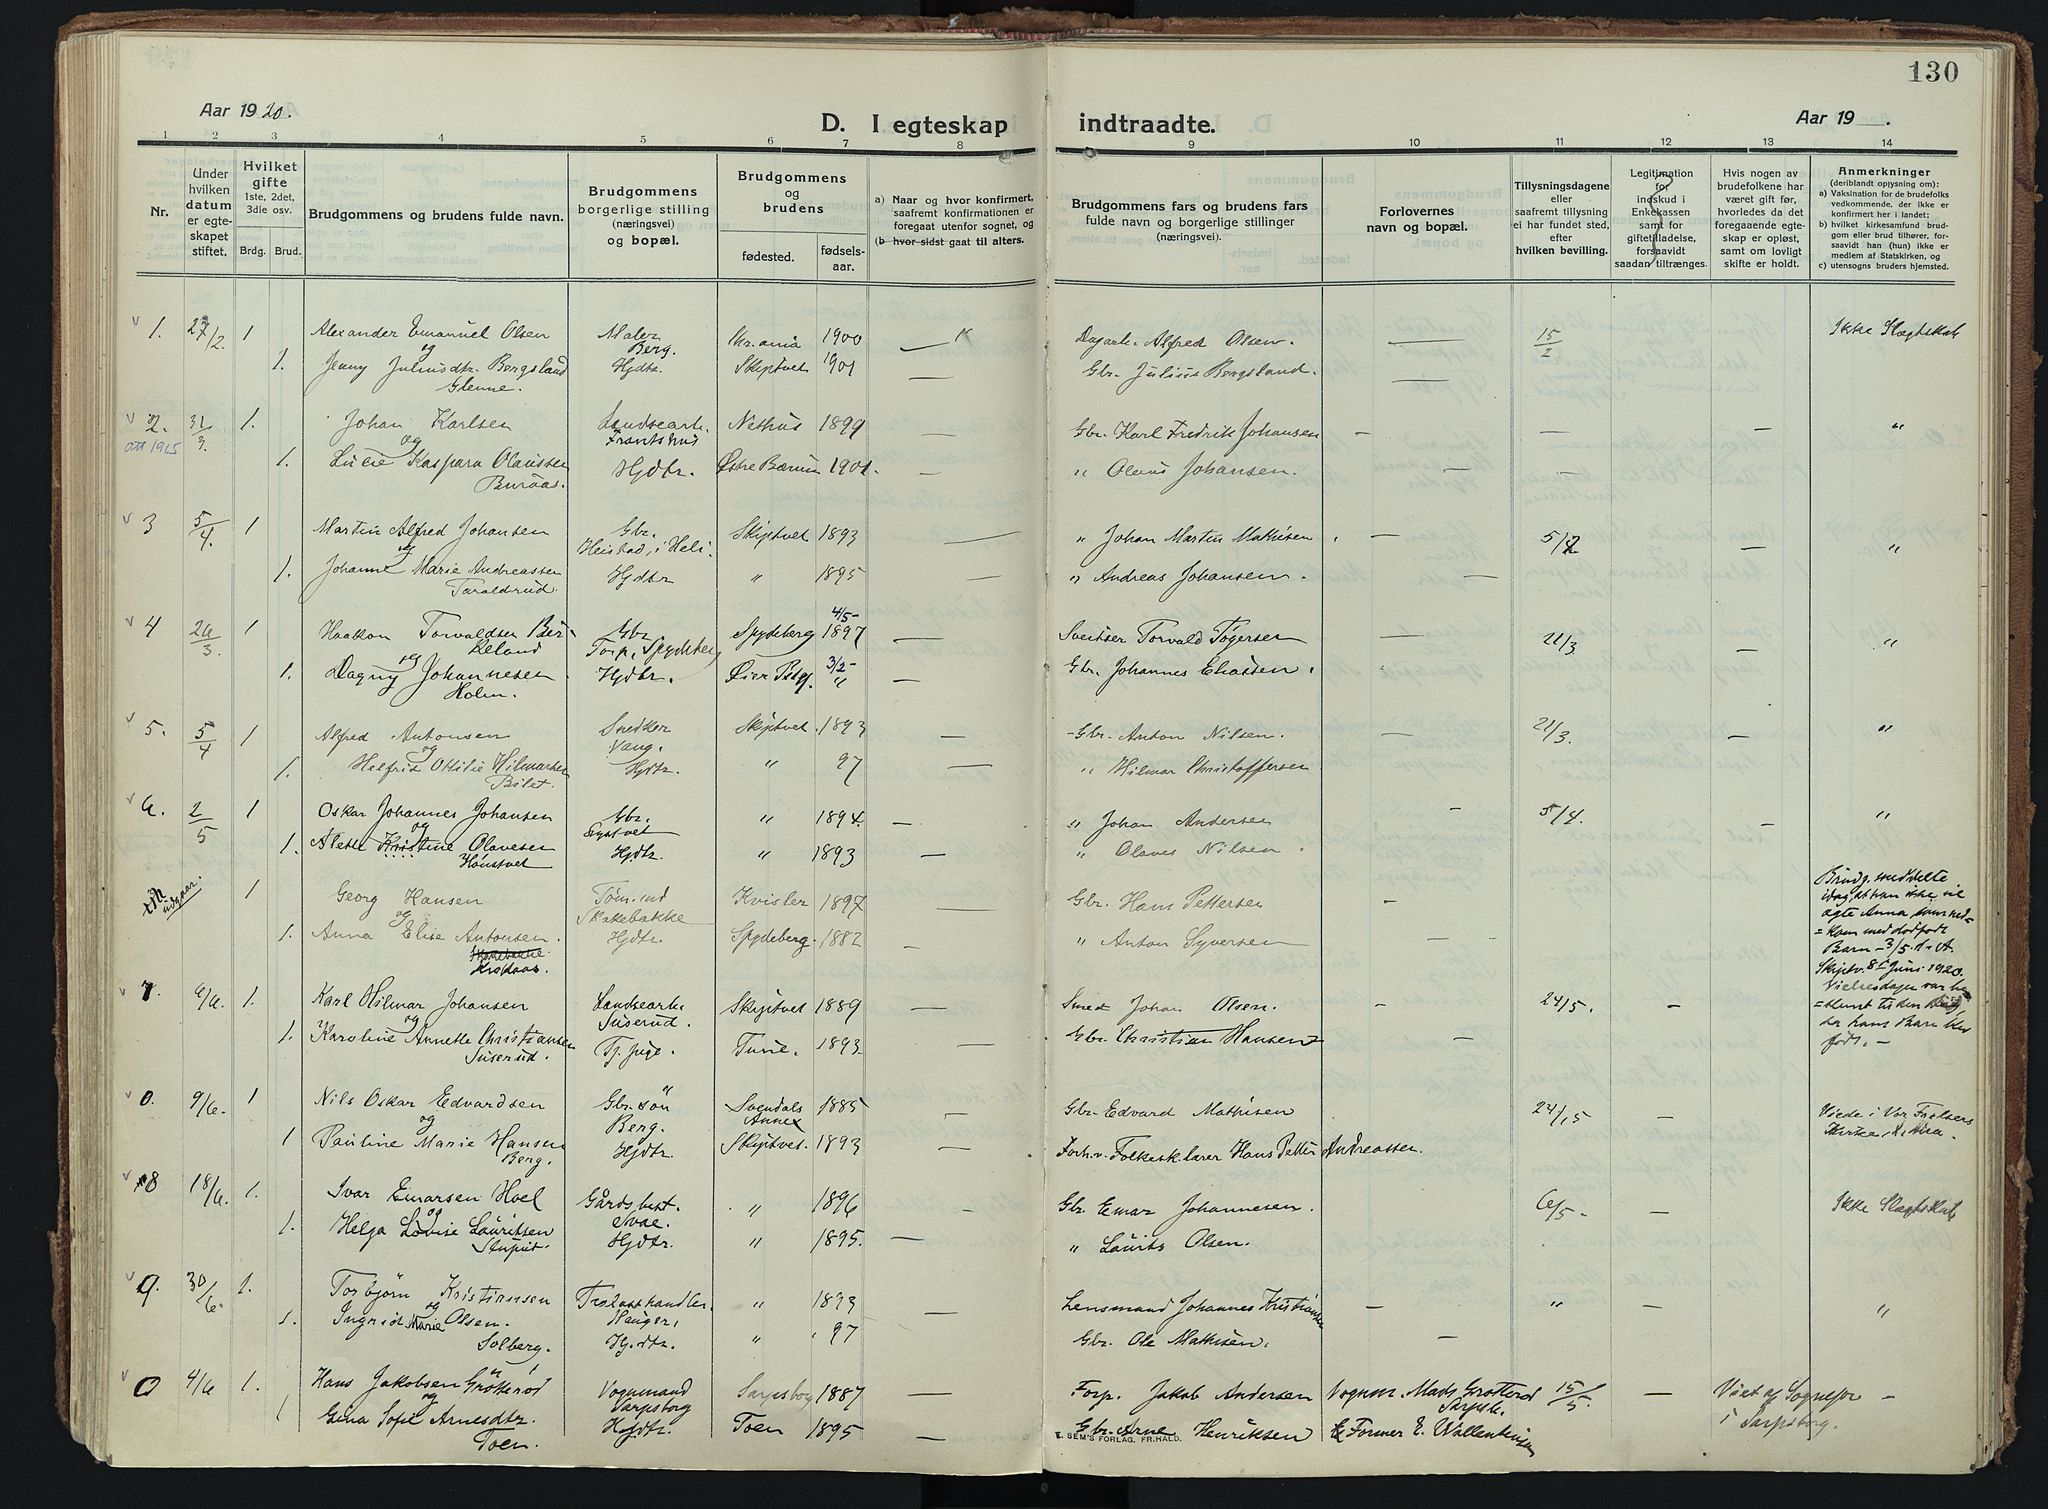 130
Aar 1920.
D. I egteskap indtraadte.
Aar 19 .
1 2 3 4 5 6 7 8 9 10 11 12 13 14
Nr.
Under hvilken datum er egteskapet stiftet.
Hvilket gifte 1ste, 2det, 3die osv.
Brdg. Brud.
Brudgommens og brudens fulde navn.
Brudgommens borgerlige stilling (næringsvei) og bopæl.
Brudgommens og brudens
fødested. fødsels-aar.
a) Naar og hvor konfirmert, saafremt konfirmationen er foregaat utenfor sognet, og
(b hvor sidst gaat til alters.
Brudgommens fars og brudens fars fulde navn og borgerlige stillinger (næringsvei).
Forlovernes navn og bopæl.
Tillysningsdagene eller saafremt tillysning ei har fundet sted, efter hvilken bevilling.
Legitimation for indskud i Enkekassen samt for giftetilladelse, forsaavidt saadan tiltrænges.
Hvis nogen av brudefolkene har været gift før, hvorledes da det foregaaende egteskap er opløst, samt om lovligt skifte er holdt.
Anmerkninger (deriblandt opysning om):
a) Vaksination for de brudefolks vedkommende, der ikke er konfirmert her i landet;
b) hvilket kirkesamfund brudgom eller brud tilhører, forsaavidt han (hun) ikke er medlem af Statskirken, og
c) utensogns bruders hjemsted.
1. 27/2 1 Alexander Emanuel Olsen Maler Kr.ania 1900 Dagarb. Alfred Olsen. 15/2 Ikke Slægtskab
og Berg.
1. Jenny Juliusdtr. Bergsland Hjdtr. Skiptvet 1901 Gbr. Julius Bergsland.
Glenne.
2. 31/3. 1. Johan Karlsen Landsearb. Nethus 1899 Gbr. Karl Fredrik Johansen "
att 1915 og Frantshus
1. Lucie Kaspara Olaussen Hjdtr. Østre Bærum 1901. " Olaus Johansen.
Buraas.
3 5/4. 1 Martin Alfred Johansen Gbr. Skiptvet 1893 " Johan Martin Mathisen "
og Heistad, i Heli.
1. Johanne Marie Andreassen Hjdtr " 1895 " Andreas Johansen.
Taraldrud.
4 26/3 1 Haakon Torvaldsen Ber- Gbr Spydeberg 4/5- 1897 Sveitser Torvald Tøgersen 21/3 "
keland Torp, Spydeberg
og
1. Dagny Johannesen Hjdtr. 3/2- " Gbr. Johannes Eliassen.
Holm.
5. 5/4 1 Alfred Antonsen Snedker Skiptvet. 1893 Gbr. Anton Nilsen. 21/3. "
og Vang.
1. Helfrid Ottilie Hilmarsen Hjdtr. " 97 " Hilmar Christoffersen
Bilet.
6. 2/5 1 Oskar Johannes Johansen Gbr. " 1894. " Johan Andersen 5/4. "
og
1. Alette Kristine Olavesen Hjdtr. " 1893 " Olaves Nilsen.
Hønstvet
udgaar. 1 Georg Hansen Tøm.md Kvisler 1897 Gbr. Hans Pettersen
og Skakebakke
1. Anna Elise Antonsen. Hjdtr. Spydeberg. 1882 " Anton Syversen
Skakebakke
Brudg. meddelte idag, at han ikke vil ægte Anna som ned-
=kom med dødfødt Barn 3/5 d. A.
Skiptv. 8 Juni 1920.
Vielsesdagen var be
=stemt til den dag, da hans Barn blev født. -
7. 6/6. 1. Karl Hilmar Johansen Landsearb. Skiptvet 1889 Smed Johan Olsen. 24/5.
og Suserud.
1. Karoline Annette Christiansen Tj.pige. Tune. 1893. Gbr. Christian Hansen
Suserud.
0. 9/6. 1 Nils Oskar Edvardsen Gbr.søn Svendals Annex 1885 Gbr. Edvard Mathisen 24/15 Viede i Vor Frelsers Kirke,
og Berg.
1 Pauline Marie Hansen Hjdtr. Skiptvet. 1893 Forh.v. Folkesk.lærer Hans Petter Andreassen.
Berg.
8 18/6. 1. Ivar Emarsen Hoel Gårdsbest. " 1896 Gbr. Emar Johannesen. 6/5 - Ikke Slægtskab
og
1. Helga Lovise Lauritsen Hjdtr. " 1895. " Laurits Olsen.
Stuput.
9. 30/6. 1. Torbjørn Kristiansen Trelasthandler. " 1893 Lensmand Johannes Kristiansen " "
og Haugen,
1. Ingrid Marie Olsen. Hj.dtr. " 97 Gbr. Ole Mathisen.
Solberg.
0 4/6 1. Hans Jakobsen Grøtterød Vognmand Sarpsborg 1887 Forp. Jakob Andersen Vognm. Mads Grøtterød 15/5. Viet af Sognepr
og Sarpsborg Sarpsb. i Sarpsborg.
1 Gina Sofie Arnesdtr. Hjdtr. Toen 1895 Gbr. Arne Henriksen Former E. Wallentinsen
Toen.
E. SEM'S FORLAG, FR.HALD.